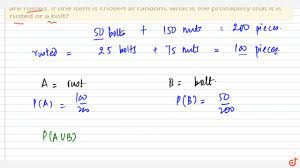 are rusted. If one item is chosen at random, what is the probability that it is
rusted or a bolt?
50 bolts + 150 nuts = 200 pieces.
rusted = 25 bolts + 75 nuts = 100 pieces
A = rust B = bolt
P(A) = 100/200 P(B) = 50/200
P(AUB)